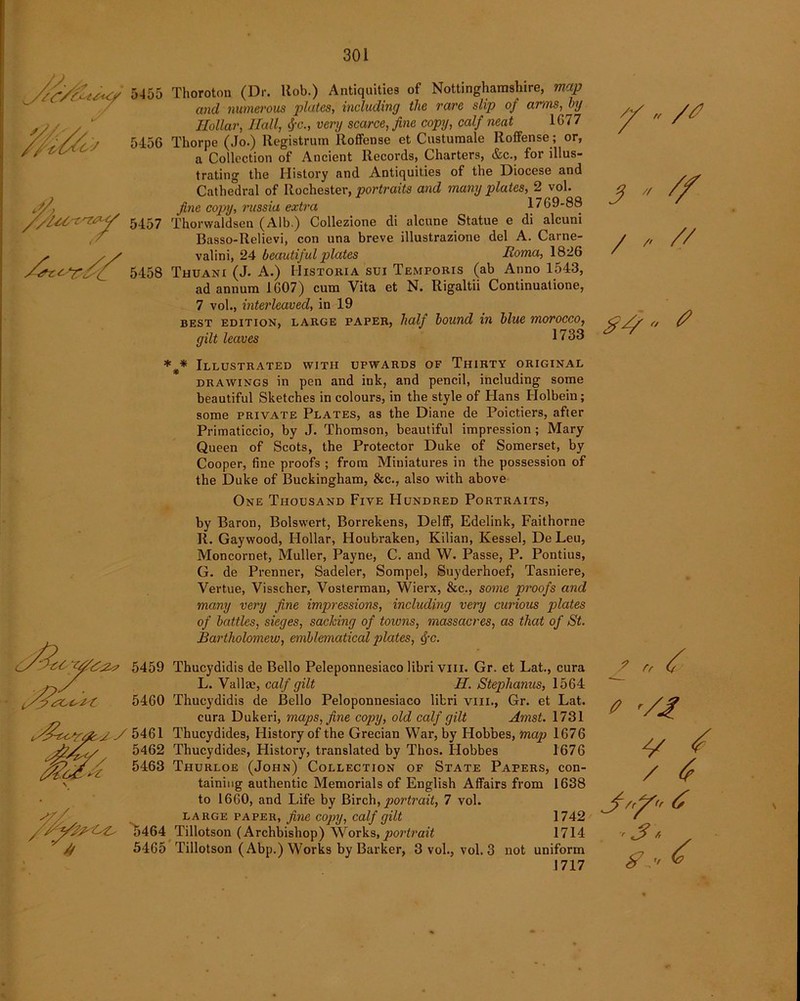 301
5455 Thoroton (Dr. Rob.) Antiquities of Nottinghamshire, map
and numerous plates, including the rare slip of arms, by
Hollar, Hall, &c., very scarce, fine copy, calf neat 1677
7 " 10
5456 Thorpe (Jo.) Registrum Roffense et Custumale Roffense; or,
a Collection of Ancient Records, Charters, &c., for illus-
trating the History and Antiquities of the Diocese and
Cathedral of Rochester, portraits and many plates, 2 vol.
fine copy, russia extra 1769-88
5457 Thorwaldsen (Alb.) Collezione di alcune Statue e di alcuni
Basso-Relievi, con una breve illustrazione del A. Carne-
valini, 24 beautiful plates Roma, 1826
1 " 11
5458 Thuani (J. A.) Historia sui Temporis (ab Anno 1543,
ad annum 1607) cum Vita et N. Rigaltii Continuatione,
7 vol., interleaved, in 19
best edition, large paper, half bound in blue morocco,
gilt leaves 1733
84 " 0
*** Illustrated with upwards of Thirty original
drawings in pen and ink, and pencil, including some
beautiful Sketches in colours, in the style of Hans Holbein;
some private Plates, as the Diane de Poictiers, after
Primaticcio, by J. Thomson, beautiful impression; Mary
Queen of Scots, the Protector Duke of Somerset, by
Cooper, fine proofs; from Miniatures in the possession of
the Duke of Buckingham, &c., also with above
One Thousand Five Hundred Portraits,
by Baron, Bolswert, Borrekens, Delff, Edelink, Faithorne
R. Gaywood, Hollar, Houbraken, Kilian, Kessel, De Leu,
Moncornet, Muller, Payne, C. and W. Passe, P. Pontius,
G. de Prenner, Sadeler, Sompel, Suyderhoef, Tasniere,
Vertue, Visscher, Vosterman, Wierx, &c., some proofs and
many very fine impressions, including very curious plates
of battles, sieges, sacking of towns, massacres, as that of St.
Bartholomew, emblematical plates, &c.
5459 Thucydidis de Bello Peleponnesiaco libri viii. Gr. et Lat., cura
L. Vallæ, calf gilt H. Stephanus, 1564
5460 Thucydidis de Bello Peloponnesiaco libri viii., Gr. et Lat.
cura Dukeri, maps, fine copy, old calf gilt Amst. 1731
5461 Thucydides, History of the Grecian War, by Hobbes, map 1676
5462 Thucydides, History, translated by Thos. Hobbes 1676
5463 Thurloe (John) Collection of State Papers, con-
taining authentic Memorials of English Affairs from 1638
to 1660, and Life by Birch, portrait, 7 vol.
large paper, fine copy, calf gilt 1742
5464 Tillotson (Archbishop) Works, portrait 1714
5465 Tillotson (Abp.) Works by Barker, 3 vol., vol. 3 not uniform
1717
8 " 6